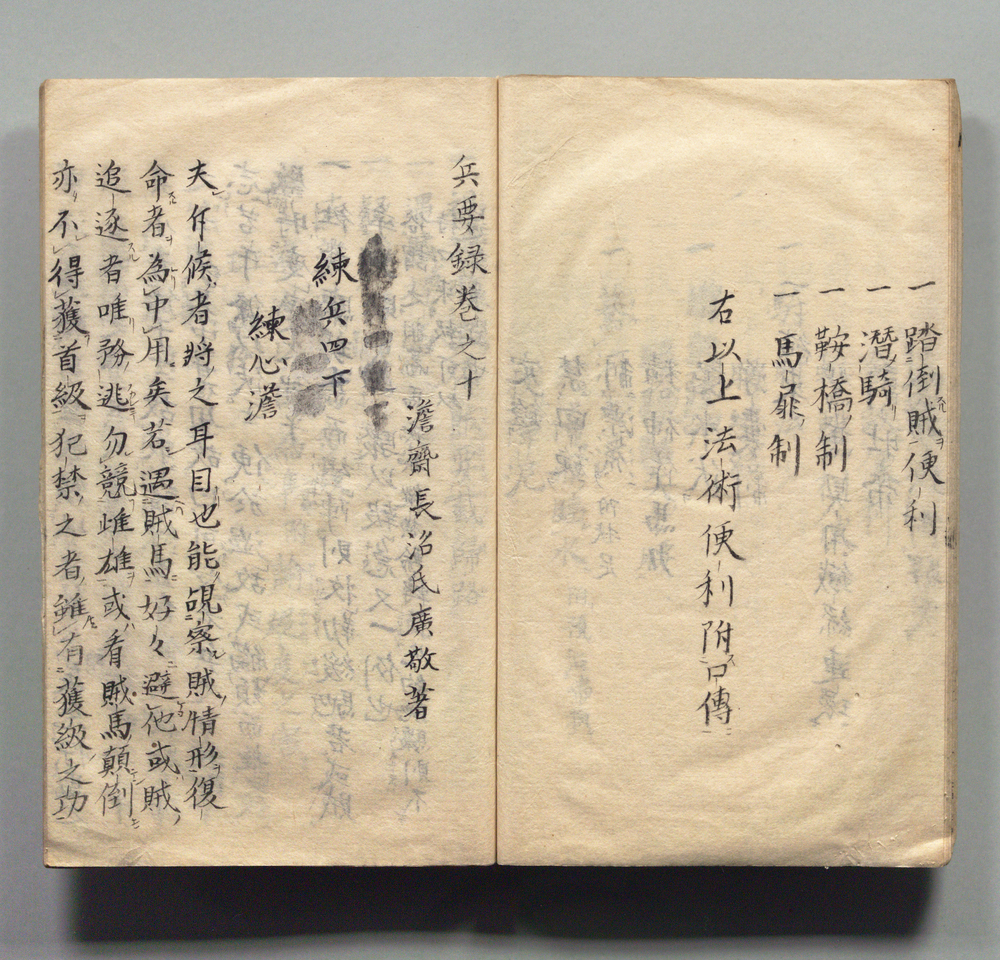 一踏倒賊便利
一潛騎
一鞍橋制
一馬屝制
右以上法術便利附口傳
兵要錄卷之十
澹齋長沼氏廣敬著
練兵四下
練心澹
夫斥候者將之耳目也能覘察賊情形復
命者為中用矣若遇賊馬好々避他或賊
追逐者唯務逃勿競雌雄或看賊馬顛倒
亦不得獲首級犯禁之者雖有獲級之功